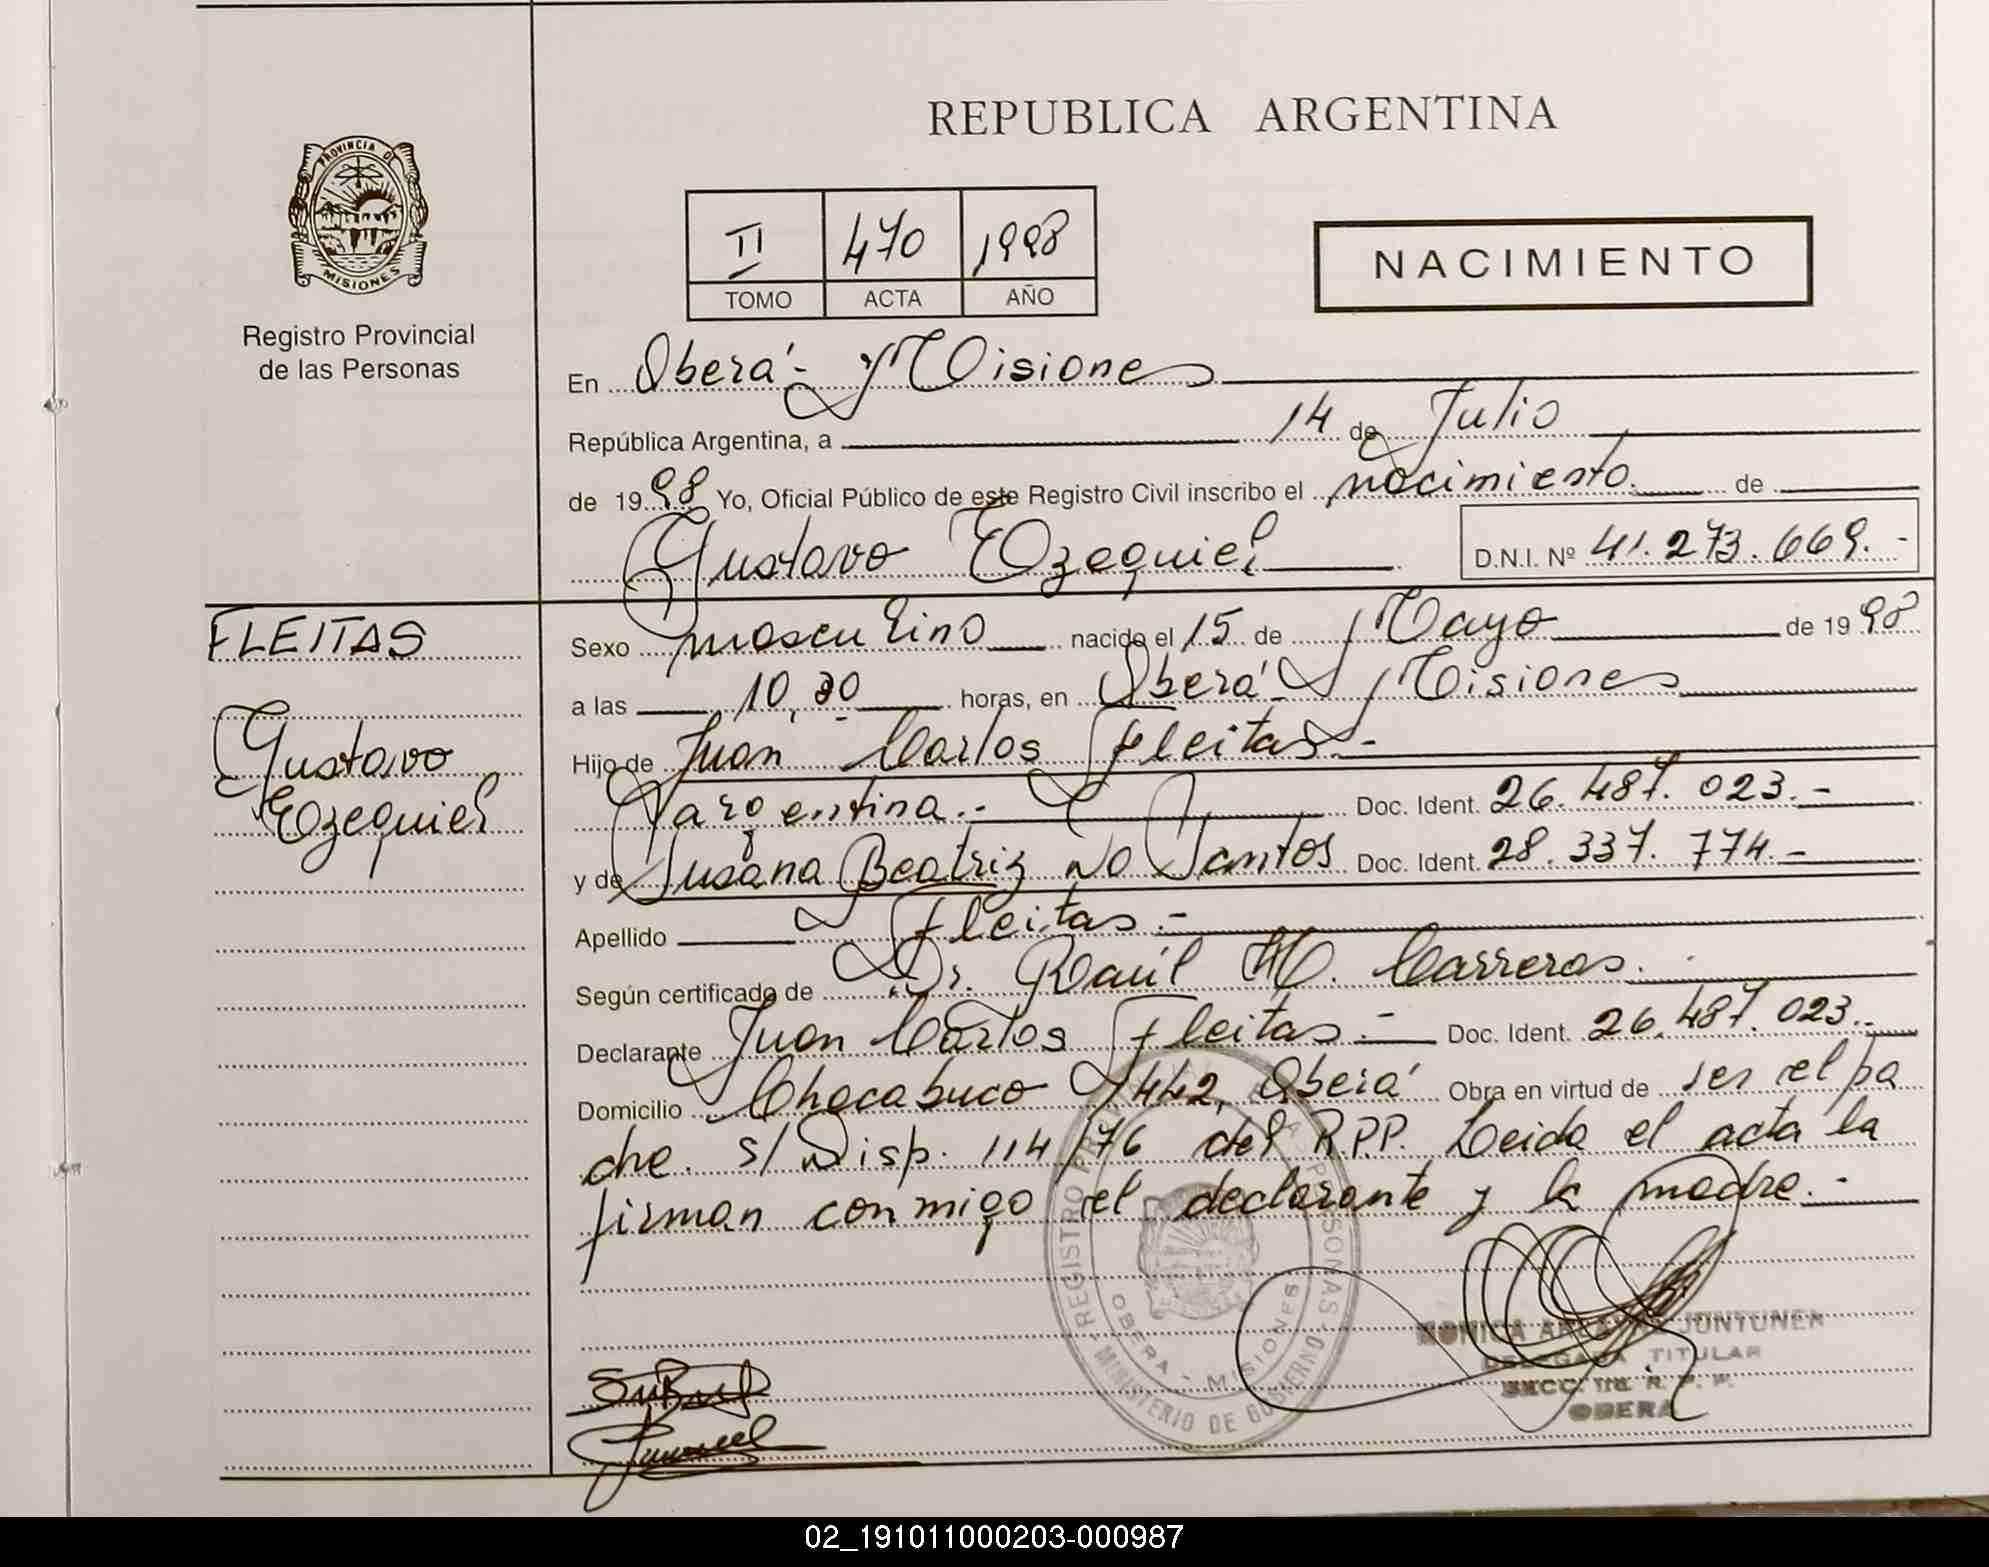 REPUBLICA ARGENTINA
PROVINCIA DE
MISIONES
Registro Provincial
de las Personas
II 470 1998
TOMO ACTA AÑO
NACIMIENTO
En Oberá - Misiones
República Argentina, a 14 de Julio
de 1998 Yo, Oficial Público de este Registro Civil inscribo el nacimiento. de
Gustavo Ezequiel D.N.I. Nº 41.273.669.-
FLEITAS
Gustavo
Ezequiel
Sexo masculino nacido el 15 de Mayo de 1998
a las 10,30 horas, en Oberá - Misiones
Hijo de Juan Carlos Fleitas.-
argentina.- Doc. Ident. 26.487.023.-
y de Susana Beatriz Do Santos Doc. Ident. 28.337.774.-
Apellido Fleitas.-
Según certificado de Dr. Raúl H. Carreras.
Declarante Juan Carlos Fleitas.- Doc. Ident. 26.487.023.-
Domicilio Chacabuco 442, Oberá Obra en virtud de ser el pa
dre. s/Disp. 114/76 del R.P.P. Leida el acta la
firman conmigo el declarante y la madre.-
REGISTRO PERSONAS
MINISTERIO DE GOBIERNO
OBERA - MISIONES
MONICA JUNTUNEN
DELEGADA TITULAR
SECC. R. P. P.
OBERA
02_191011000203-000987